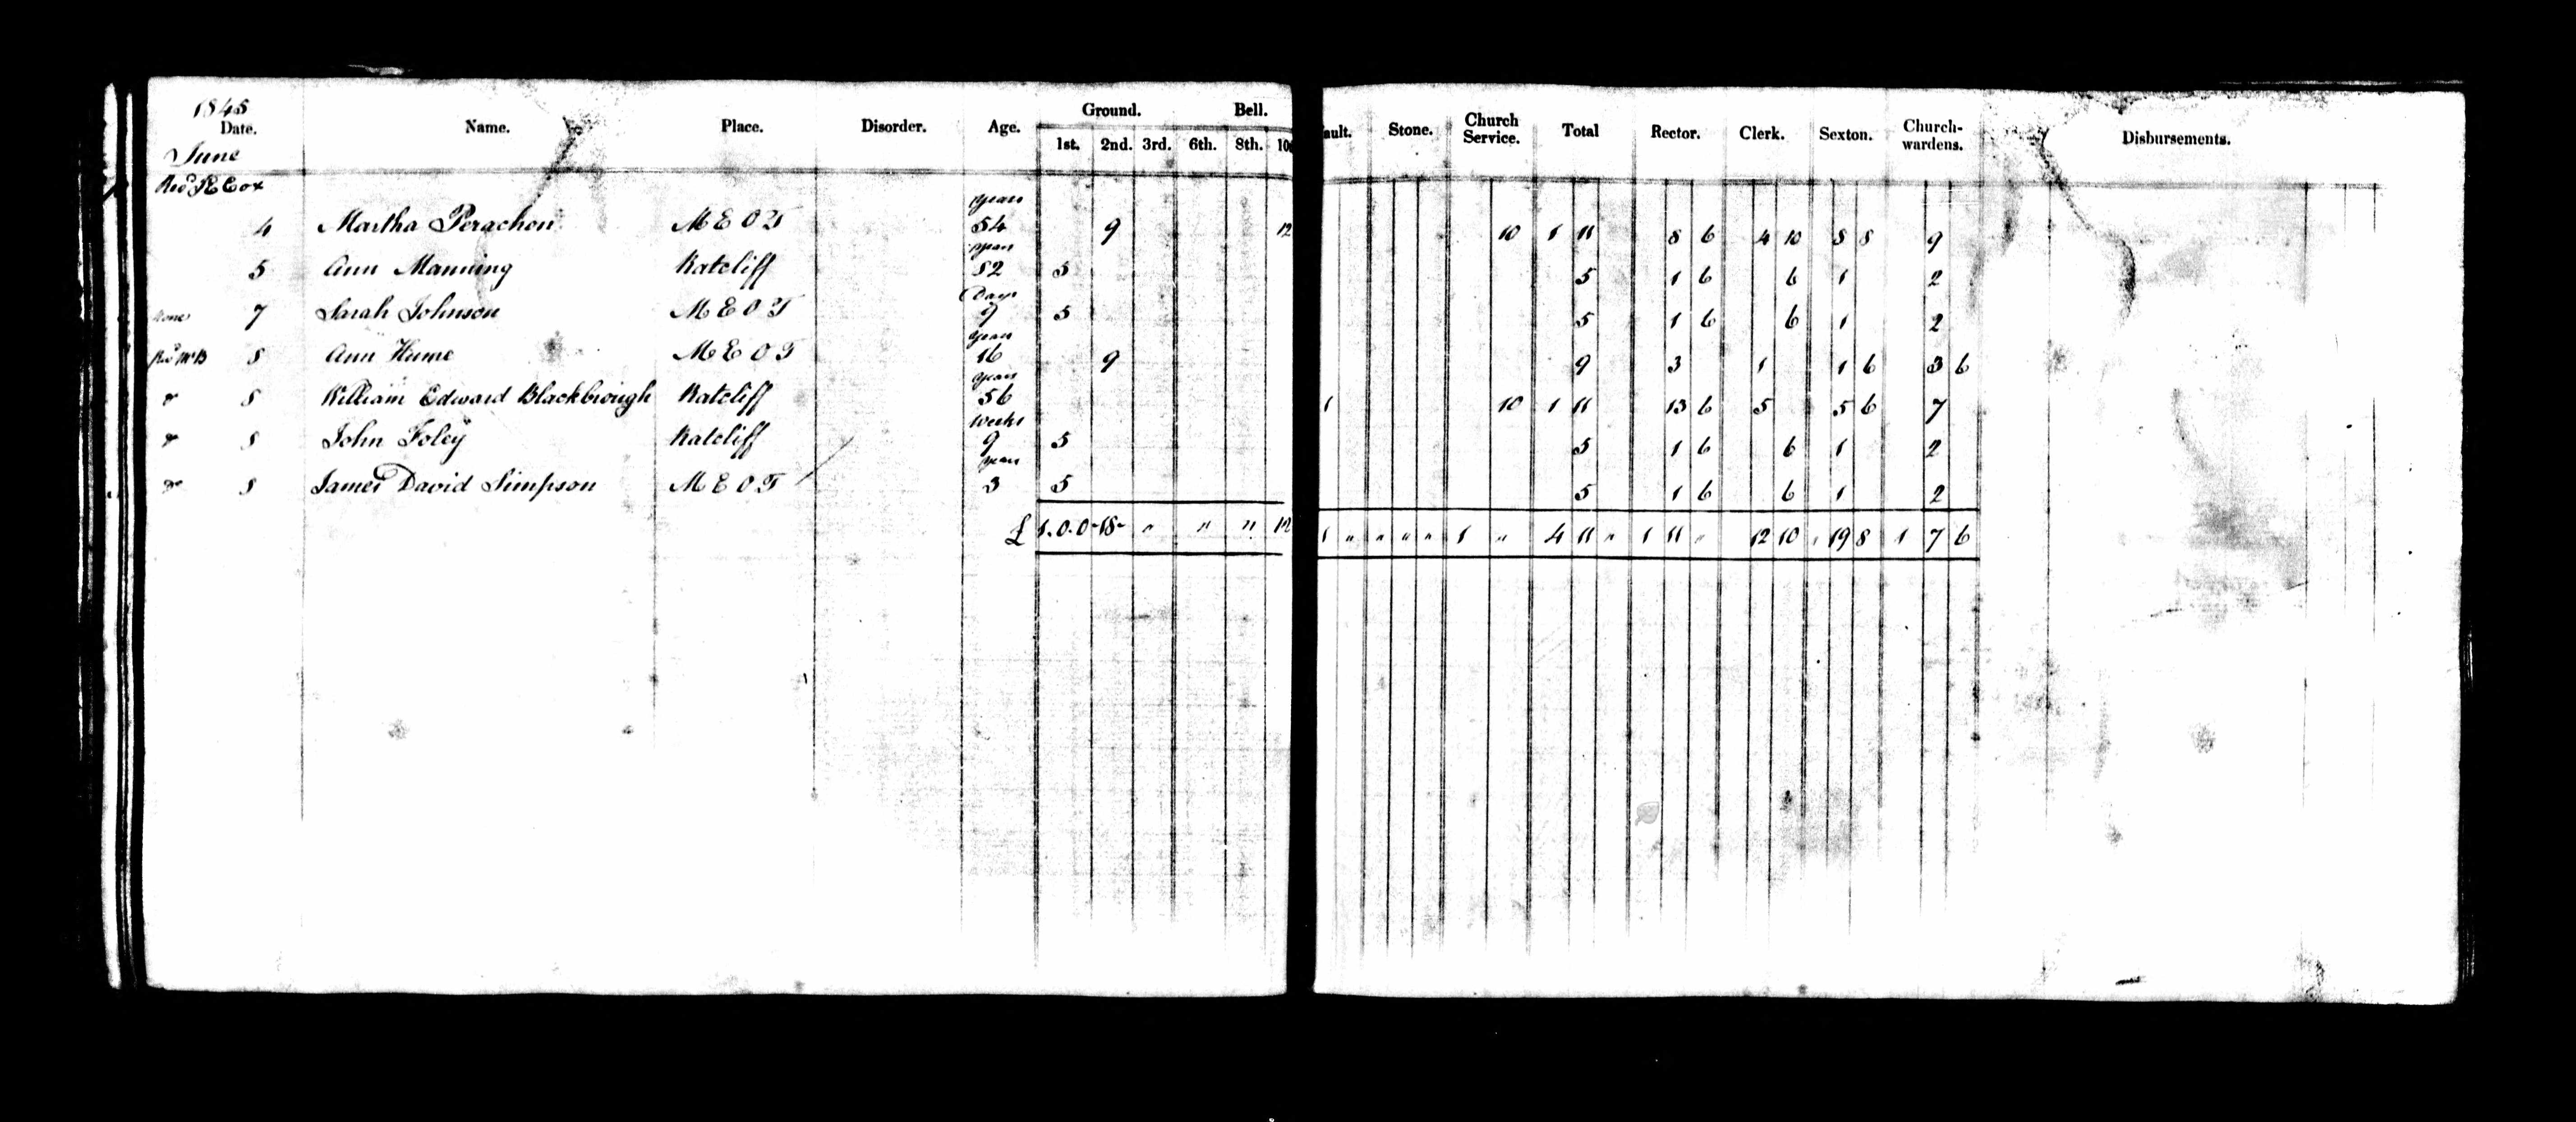 1845
Date. Name. Place. Disorder. Age. Ground. Bell. ault. Stone. Church Service. Total Rector. Clerk. Sexton. Church-wardens. Disbursements.
1st. 2nd. 3rd. 6th. 8th. 10
June
Revd R E Cox
years
4 Martha Perachon M E O T 54 9 12 10 1 11 8 6 4 10 8 8 9
years
5 Ann Manning Ratcliff 82 5 5 1 6 6 1 2
Days
None 7 Sarah Johnson M E O T 9 5 5 1 6 6 1 2
years
Revd Mr B 8 Ann Hume M E O T 16 9 9 3 1 1 6 3 6
years
Do 8 William Edward Blackbrough Ratcliff 56 1 10 1 11 13 6 5 5 6 7
Weeks
Do 8 John Foley Ratcliff 9 5 5 1 6 6 1 2
years
Do 8 James David Simpson M E O T 3 5 5 1 6 6 1 2
£ 1.0.0 -18- " " " 12 1 " " " " 1 " 4 11 " 1 11 " 12 10 19 8 1 7 6